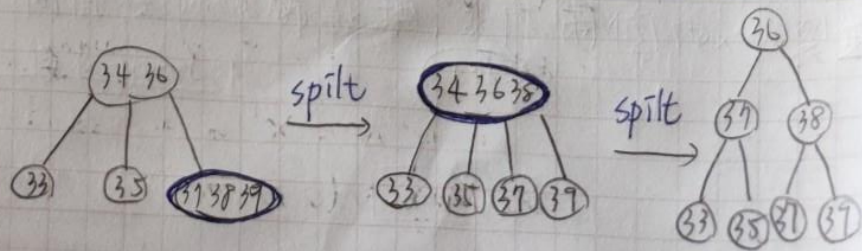 34 36
33 35 37 38 39
spilt
34 36 38
33 35 37 39
spilt
36
38
33 35 37 39